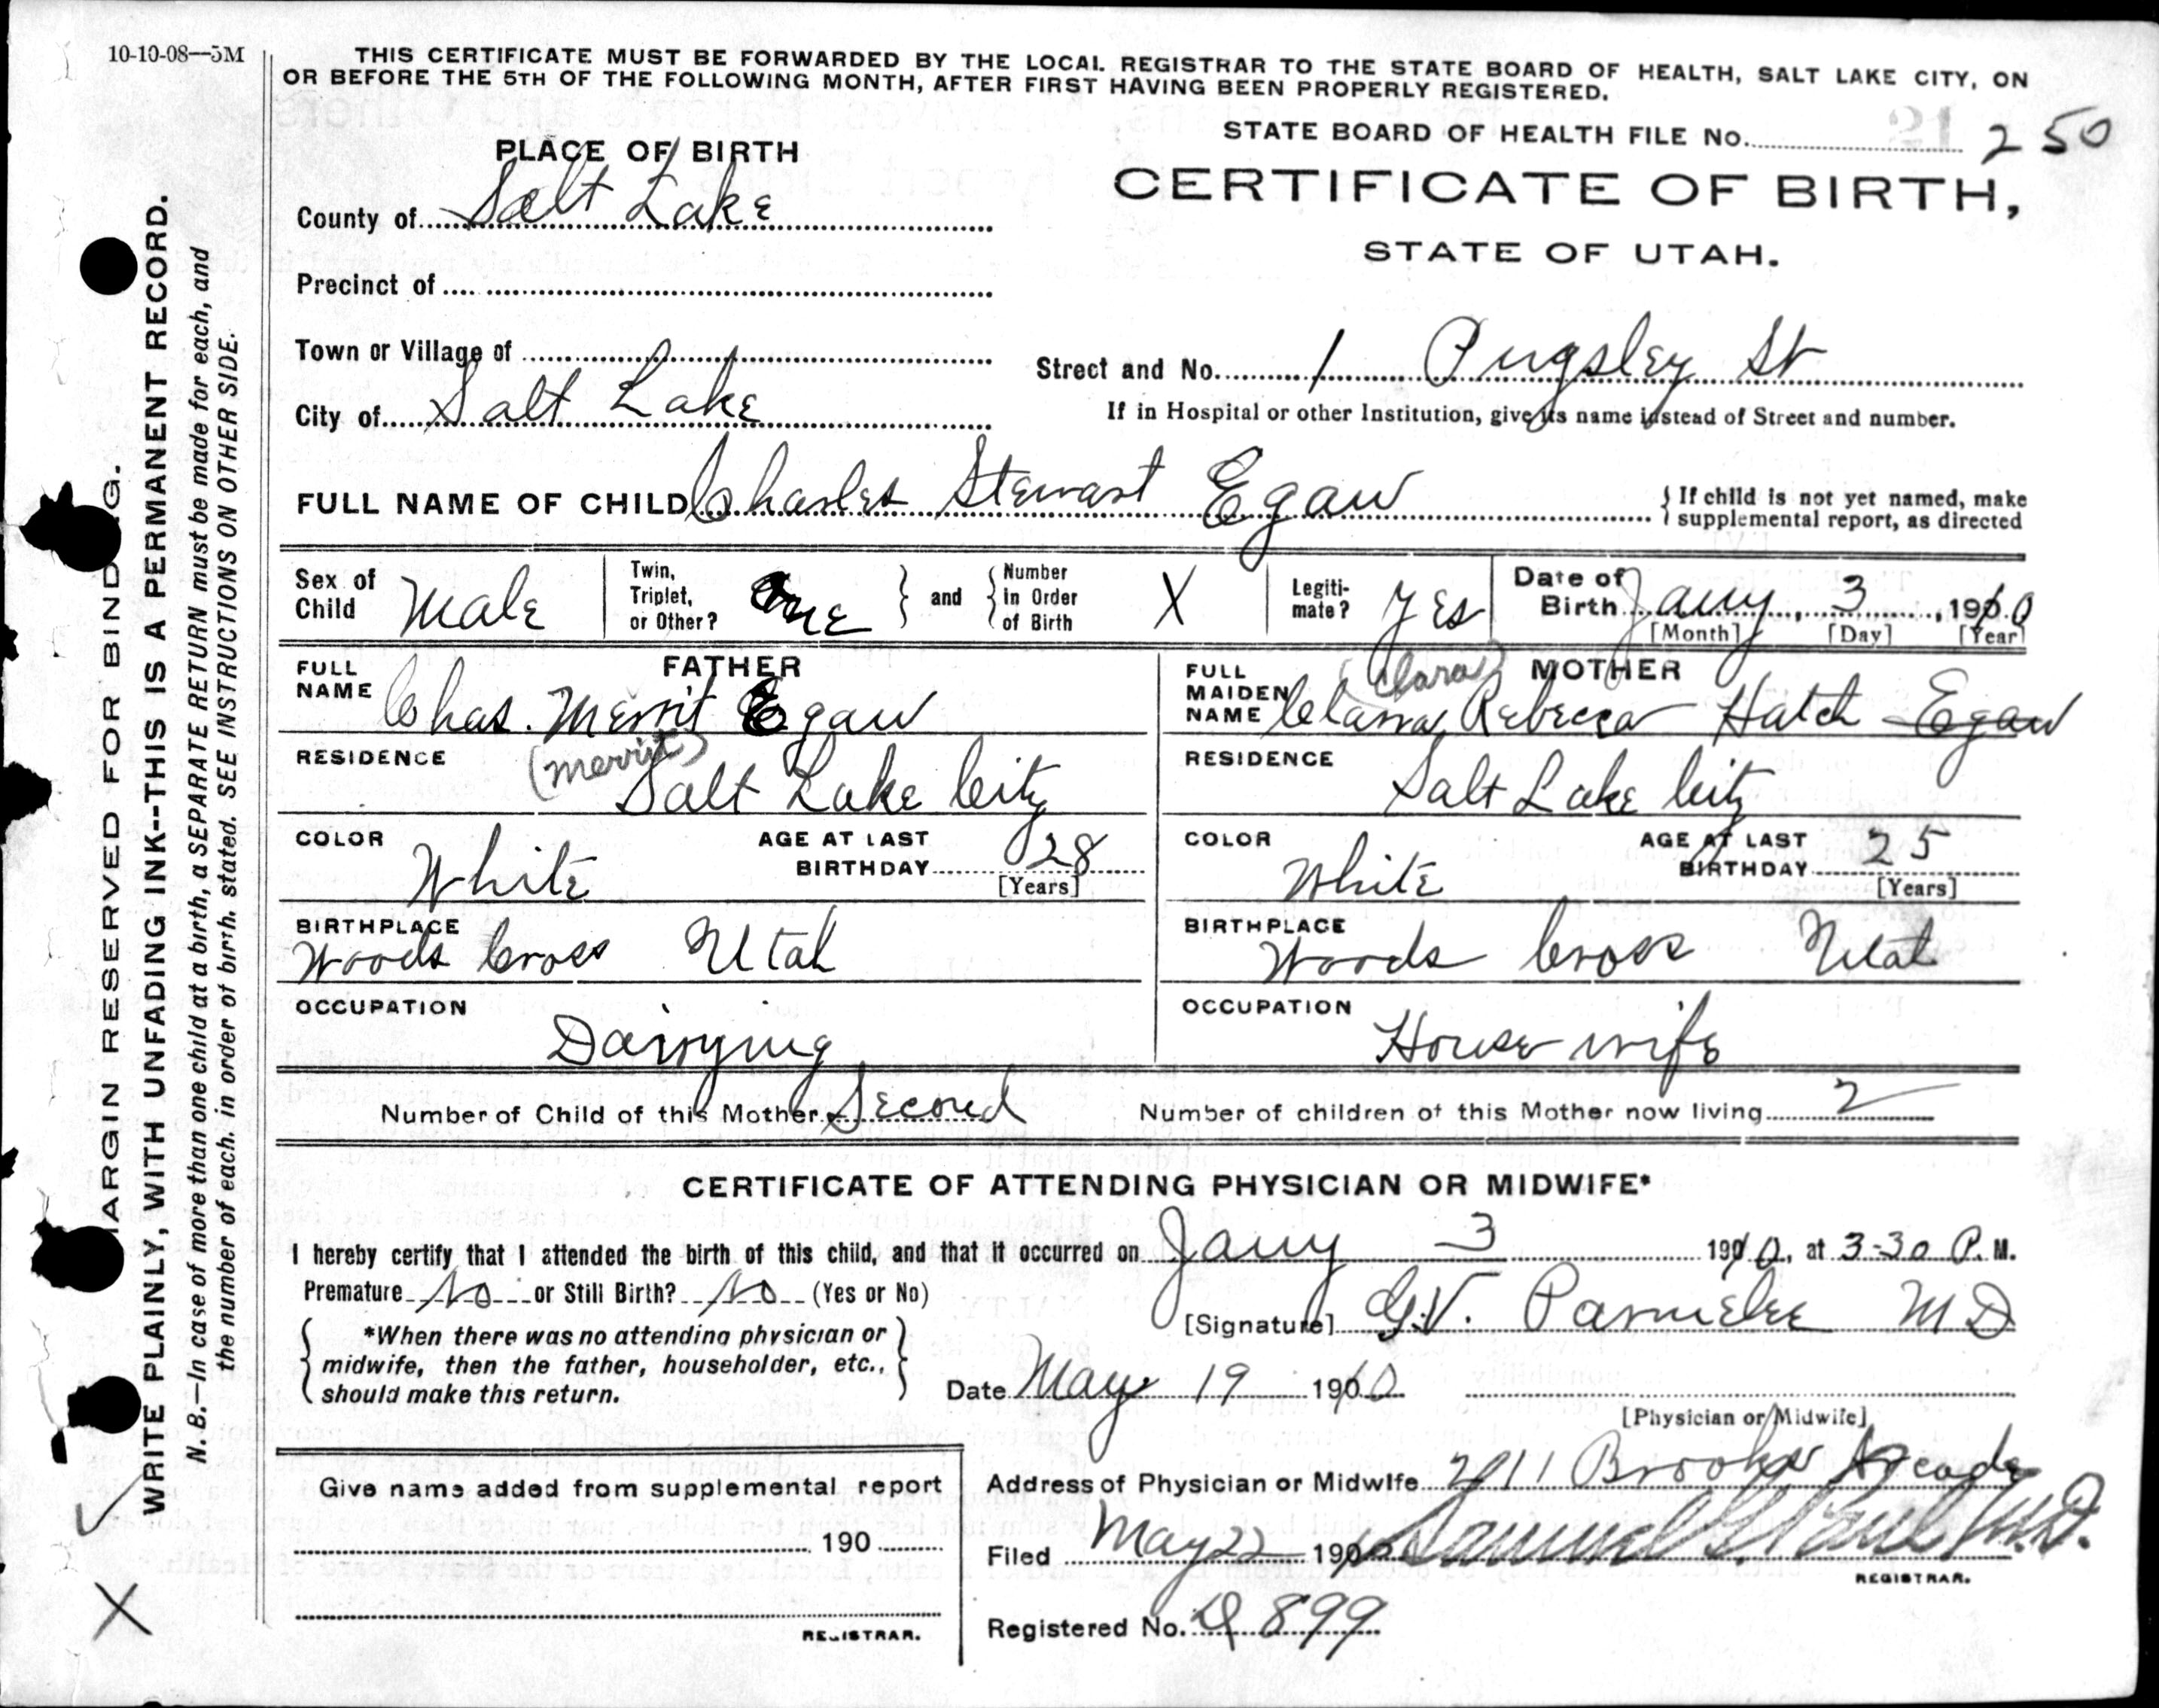 10-10-08—5M
THIS CERTIFICATE MUST BE FORWARDED BY THE LOCAL REGISTRAR TO THE STATE BOARD OF HEALTH, SALT LAKE CITY, ON
OR BEFORE THE 5TH OF THE FOLLOWING MONTH, AFTER FIRST HAVING BEEN PROPERLY REGISTERED.
STATE BOARD OF HEALTH FILE No. 250
PLACE OF BIRTH
CERTIFICATE OF BIRTH,
STATE OF UTAH.
County of Salt Lake
Precinct of
Town or Village of
Street and No. 1 Pugsley St
City of Salt Lake
If in Hospital or other Institution, give its name instead of Street and number.
FULL NAME OF CHILD Charles Stewart Egan
If child is not yet named, make
supplemental report, as directed
Sex of Child Male
Twin, Triplet, or Other? One
and Number in Order of Birth X
Legitimate? Yes
Date of Birth Jany 3, 1910
[Month] [Day] [Year]
FATHER
FULL NAME Chas. Merrit Egan
(Merritt)
RESIDENCE Salt Lake City
COLOR White
AGE AT LAST BIRTHDAY 28
[Years]
BIRTHPLACE Woods Cross Utah
OCCUPATION Dairying
MOTHER
(Clara)
FULL MAIDEN NAME Clarra Rebecca Hatch Egan
RESIDENCE Salt Lake City
COLOR White
AGE AT LAST BIRTHDAY 25
[Years]
BIRTHPLACE Woods Cross Utah
OCCUPATION House wife
Number of Child of this Mother Second
Number of children of this Mother now living 2
CERTIFICATE OF ATTENDING PHYSICIAN OR MIDWIFE*
I hereby certify that I attended the birth of this child, and that it occurred on Jany 3 1910, at 3-30 P. M.
Premature No or Still Birth? No (Yes or No)
[Signature] G.V. Parmelee M D
*When there was no attending physician or
midwife, then the father, householder, etc.,
should make this return.
Date May 19 1910
[Physician or Midwife]
Address of Physician or Midwife 2011 Brooks Arcade
Give name added from supplemental report
190
REGISTRAR.
Filed May 22 1910 Samuel G. Paul M.D.
REGISTRAR.
Registered No. D 899
MARGIN RESERVED FOR BINDING.
WRITE PLAINLY, WITH UNFADING INK--THIS IS A PERMANENT RECORD.
N. B.—In case of more than one child at a birth, a SEPARATE RETURN must be made for each, and
the number of each, in order of birth, stated. SEE INSTRUCTIONS ON OTHER SIDE.
X